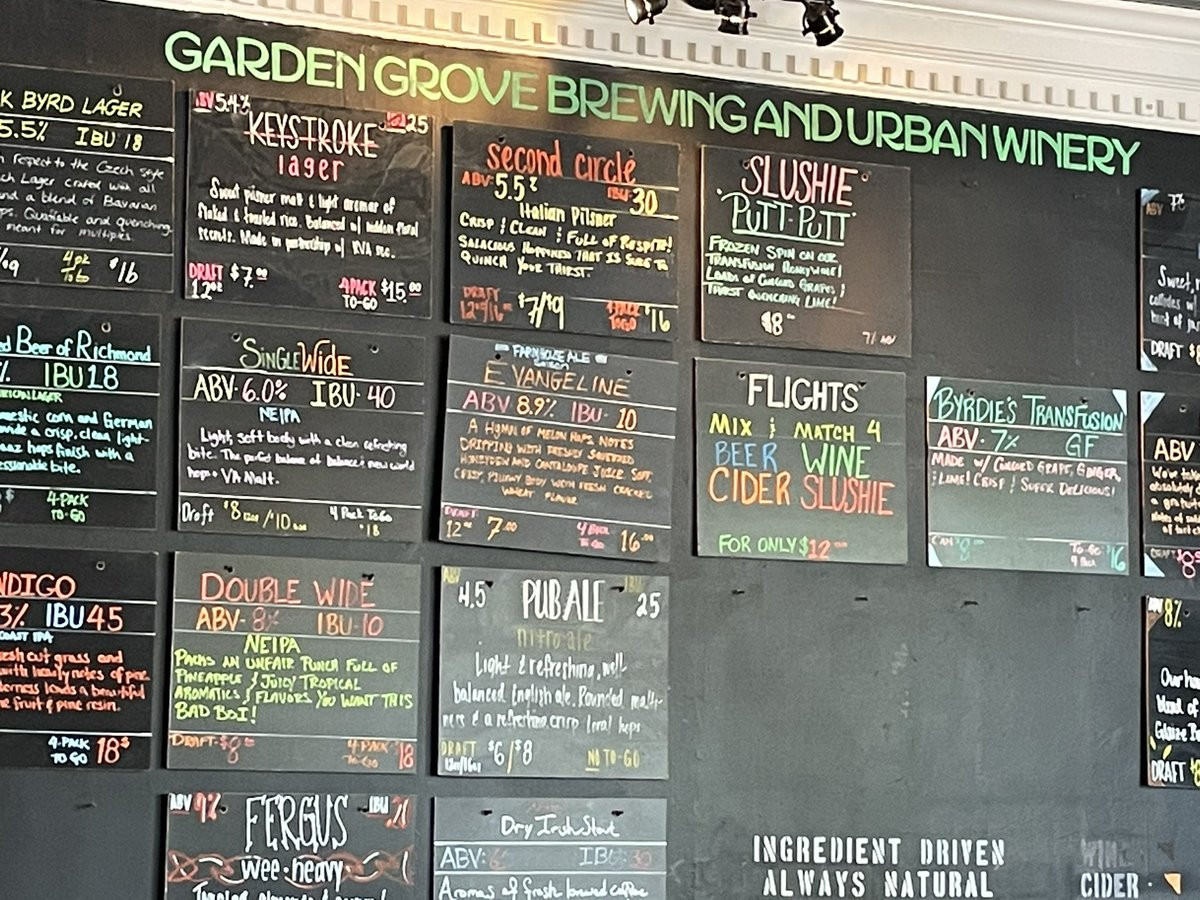 GARDEN GROVE BREWING AND URBAN WINERY
K BYRD LAGER
5.5% IBU 18
respect to the Czech Style
Lager crafted with all
and a blend of Bavarian
Quaffable and quenching
meant for multiples.
4pk
To Go
$16
ABV 5.4% 25
KEYSTROKE
lager
Sweet pilsner malt & light aromas of
flaked & toasted rice. Balanced w/ hidden floral
scents. Made in partnership w/ RVA sec.
DRAFT
12oz
$7.00
4PACK
TO-GO
$15.00
second circle
ABV: 5.5% IBU: 30
Italian Pilsner
CRISP & CLEAN & FULL OF RESPITE!
SALACIOUS HOPPINESS THAT IS SURE TO
QUENCH YOUR THIRST.
DRAFT
12oz/16oz
$7/$9
4 PACK
TO GO
$16
SLUSHIE
"PUTT-PUTT"
FROZEN SPIN ON OUR
TRANSFUSION HONEYWINE!
LOADS OF CONCORD GRAPES &
THIRST QUENCHING LIME!
$8
7% ABV
Beer of Richmond
IBU 18
LAGER
domestic corn and German
a crisp, clean light-
hops finish with a
bite.
4-PACK
TO-GO
SINGLE WIDE
ABV-6.0% IBU-40
NEIPA
Light, soft body with a clean refreshing
bite. The perfect balance of balance & new world
hops + VA Malt.
Draft $8 /$10
4 Pack To Go
$18
FARMHOUSE ALE
EVANGELINE
ABV 8.9% IBU- 10
A HYMN OF MELON HOPS NOTES
DRIPPING WITH FRESHLY SQUEEZED
HONEYDEW AND CANTALOUPE JUICE. SOFT,
CRISP, PILLOWY BODY WITH FRESH CRACKED
WHEAT FLAVOR
DRAFT
12oz
7.00
4 PACK
TO GO
16
"FLIGHTS"
MIX & MATCH 4
BEER WINE
CIDER SLUSHIE
FOR ONLY $12
BYRDIE'S TRANSFUSION
ABV- 7% GF
MADE W/ CONCORD GRAPE, GINGER,
& LIME! CRISP & SUPER DELICIOUS!
CAN $8
TO-GO
4 PACK
$16
DRAFT $
ABV
NDIGO
3% IBU 45
COAST IPA
fresh cut grass and
with heavy notes of pine
leads a beautiful
fruit & pine resin.
4-PACK
TO GO
18$
DOUBLE WIDE
ABV- 8% IBU-10
NEIPA
PACKS AN UNFAIR PUNCH FULL OF
PINEAPPLE & JUICY TROPICAL
AROMATICS & FLAVORS YOU WANT THIS
BAD BOI!
DRAFT-$8
4-PACK
TO-GO
$18
ABV
4.5
PUB ALE
IBU
25
nitro ale
Light & refreshing, well-
balanced English ale. Rounded malti-
ness & a refreshing crisp local hops
DRAFT
12oz/16oz
$6/$8
NO TO-GO
8%
Our
blend of
DRAFT $
ABV 9% IBU 21
FERGUS
wee-heavy
Dry Irish Stout
ABV: 6 IBU: 30
Aromas of fresh brewed coffee
INGREDIENT DRIVEN
ALWAYS NATURAL
WINE
CIDER